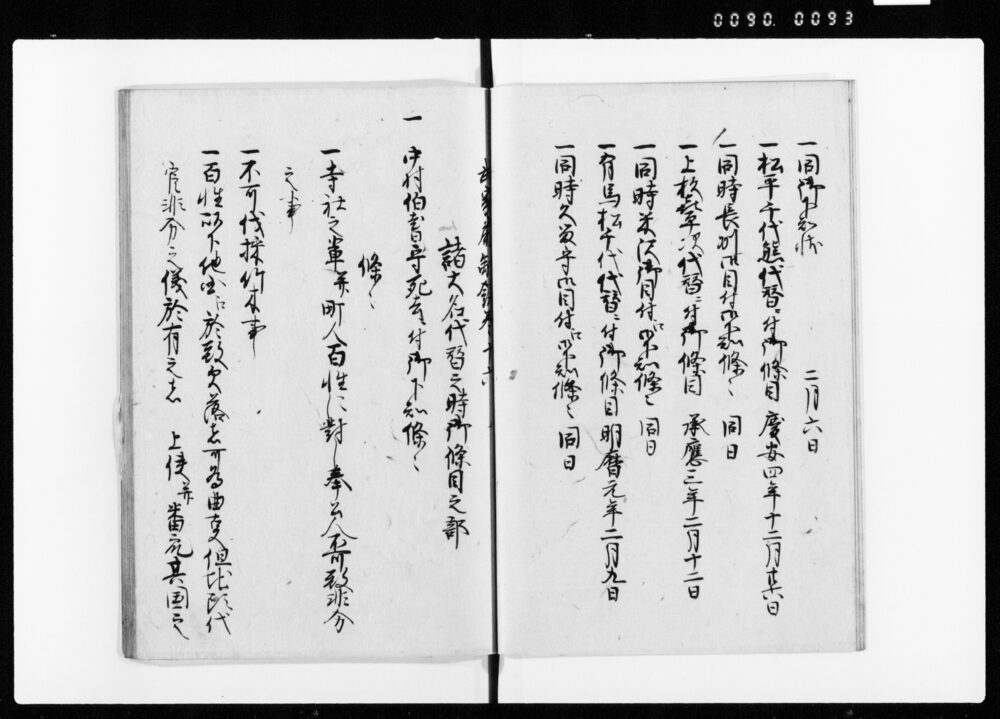 0090. 0093
一同御下知状 二月六日
一松平千代熊代替ニ付御條目 慶安四年十二月廿六日
一同時長州御目付御下知條々 同日
一上杉喜平次代替ニ付御條目 承應三年二月十二日
一同時米沢御目付江御下知條々 同日
一有馬松千代代替ニ付御條目 明暦元年二月九日
一同時久留米御目付江御下知條々 同日
武家嚴制録巻十六
諸大名代替之時御條目之部
一 中村伯耆守死去ニ付御下知條々
條々
一寺社之輩并町人百姓ニ對し奉公人不可致非分
之事
一不可伐採竹木事
一百姓所下他出於致欠落者可為曲事但此跡代
官非分之儀於有之者 上使并番衆其国之